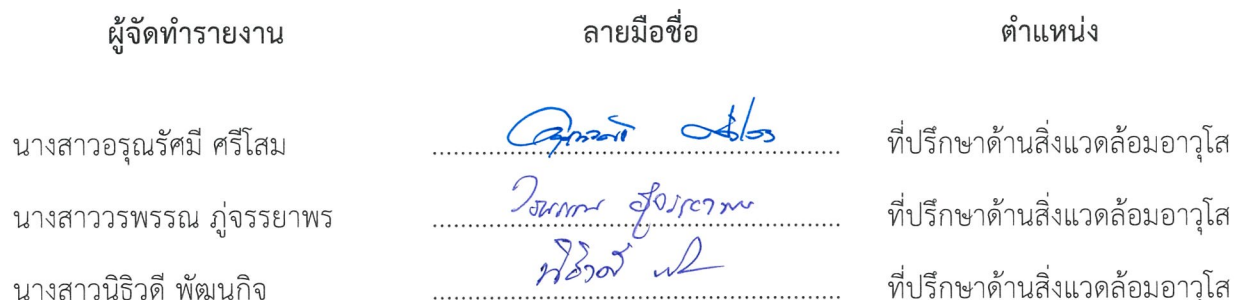 ผู้จัดทำรายงาน ลายมือชื่อ ตำแหน่ง
นางสาวอรุณรัศมี ศรีโสม ที่ปรึกษาด้านสิ่งแวดล้อมอาวุโส
นางสาววรพรรณ ภู่จรรยาพร ที่ปรึกษาด้านสิ่งแวดล้อมอาวุโส
นางสาวนิธิวดี พัฒนกิจ ที่ปรึกษาด้านสิ่งแวดล้อมอาวุโส